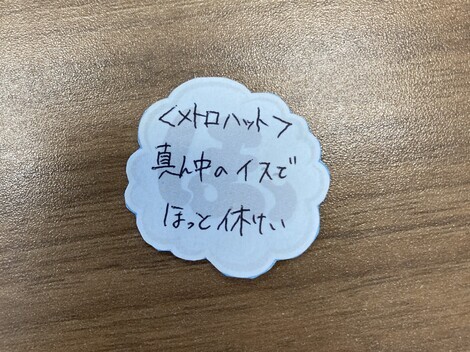 <メトロハット>
真ん中のイスで
ほっと休けい